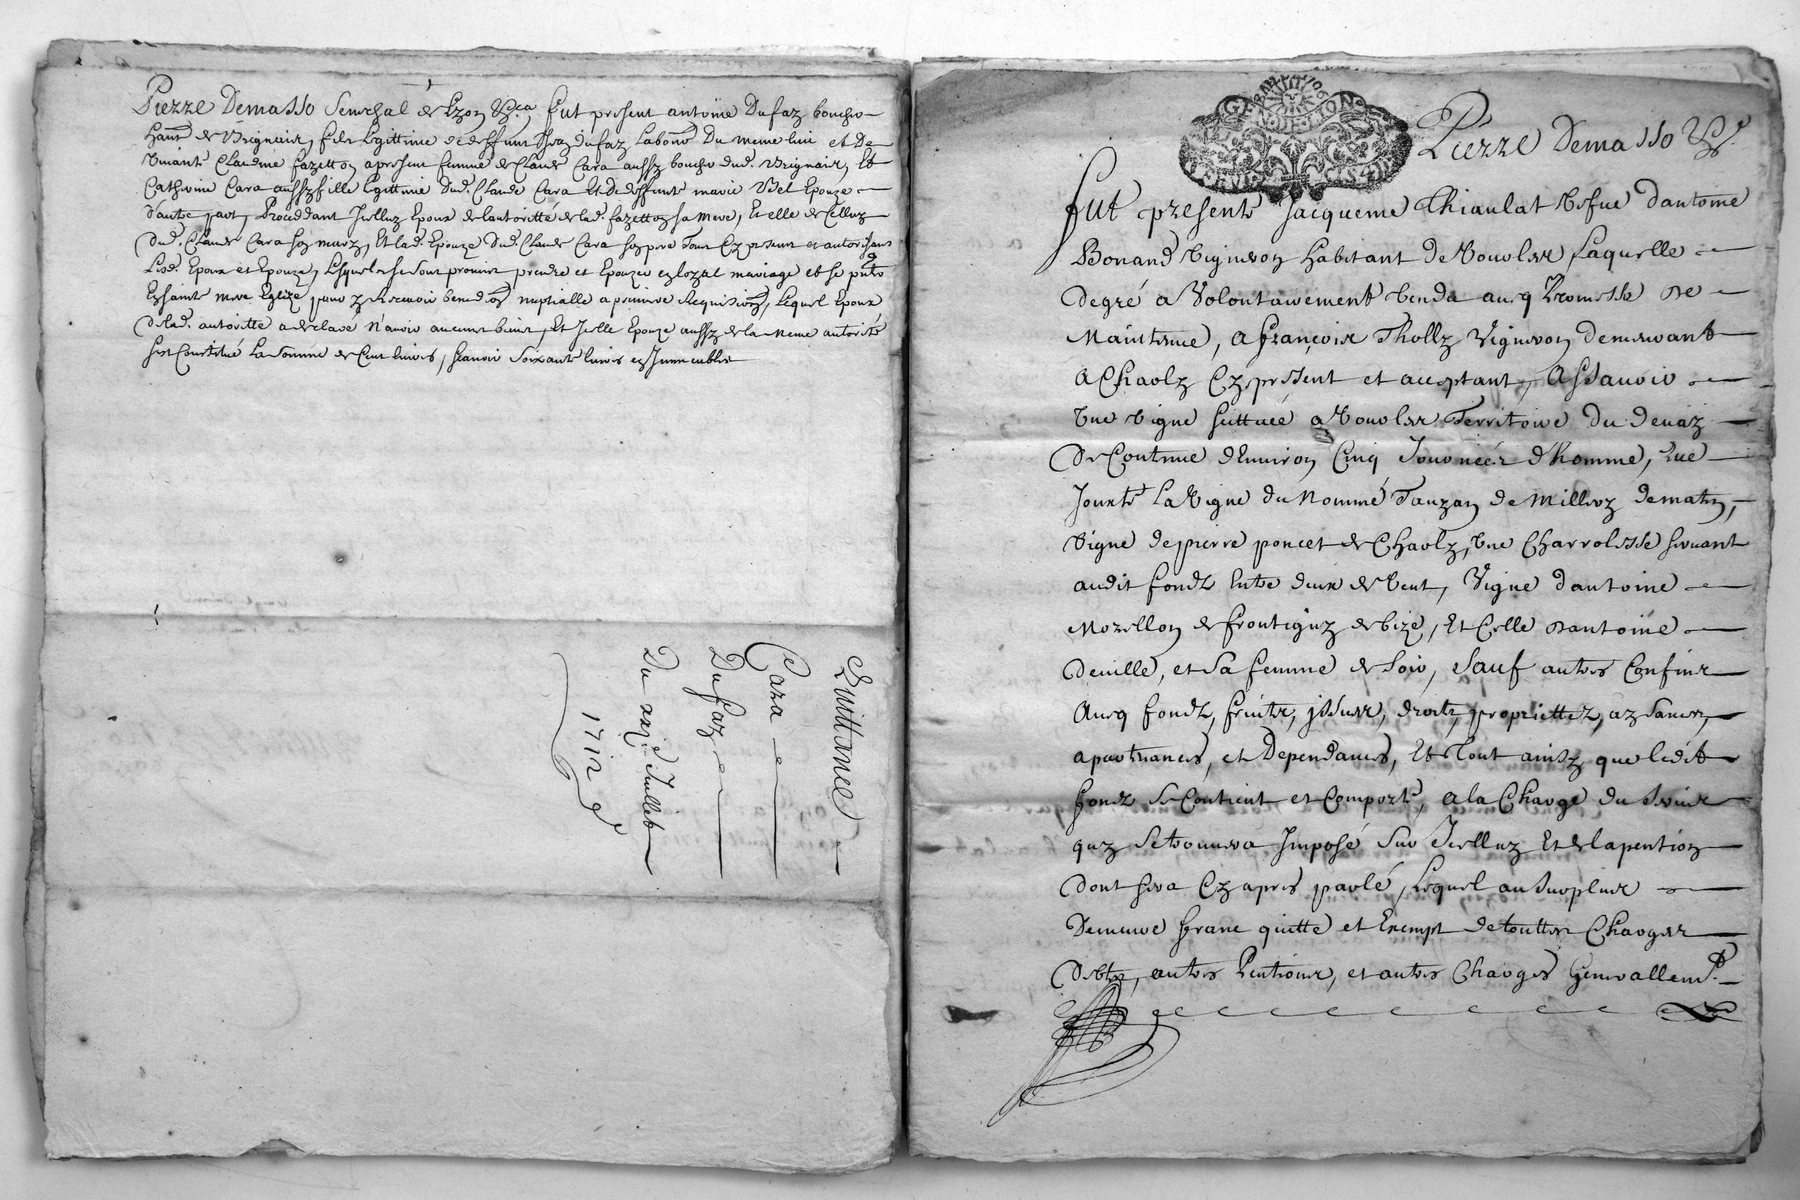 Pierre Demasso Senechal de Lyon &ca fut present antoine Dufay bouche
hant de Brignais, fils legittime de deffunt Dufay Labour Du meme lieu et De
vivante Claudine fazetton a present femme de Claude Cara aussy bouche dud. Brignais, Et
Catherine Cara aussy fille legittime dud. Claude Cara Et de deffunte marie Bel Epouze
d'autre part, Proceddant Icelluy Epoux de l'autoritté de lad. fazetton sa mere, Et elle de Celluy
dud. Claude Cara son mary, Et lad. Epouze dud. Claude Cara son pere Tous Cy presents et autorisans
Lesd. Epoux et Epouze, lesquels se sont promis prendre et Epouzer en loyal mariage et se
En sainte mere Eglize pour y Recevoir benedion nuptialle a premiere Requisition, Lequel Epoux
de lad. autoritté a declaré n'avoir aucuns biens, Et Icelle Epouze aussy de la meme autorité
sest Constitué La somme de Cent livres, scavoir soixante livres en Immeubles
Quittance
Cara
Dufay
Du xxje. Juillet
1712
GENERALITE DE LYON
Pierre Demasso &c.
fut presente Jacqueme Chiaulat vefue dantoine
Bonand vigneron habitant de Vourles Laquelle
degré a Volontairement vendu aueq Promesse de
Maintenue, a françois Tholly Vigneron demeurant
a Charly Cy present et acceptant, Assauoir
Vne vigne scittuée a Vourles Territoire du deuay
de Contenue d'Enuiron Cinq Journées d'homme, que
Jouxte La vigne du nommé Tauzan de Millery de matin,
vigne de pierre poncet de Charly, vne Charrolesse seruant
audit fondz Entre deux de vent, Vigne dantoine
Morellon de frontigny de bize, Et Celle dantoine
deville, et sa femme de soir, sauf autres Confins
Aueq fondz, fruits, jssues, droits, proprietez, aysances,
apartenances, et Dependances, Et Tout ainsy que ledit
fondz se Contient et Comporte, a la Charge du seruis
quy se trouuera Imposé Sur Icelluy Et de la pention
dont sera Cy apres parlé, Lequel au surplus
Demeure franc quitte et Exempt de touttes Charges
debtes, autres Pentions, et autres Charges Generallemt.